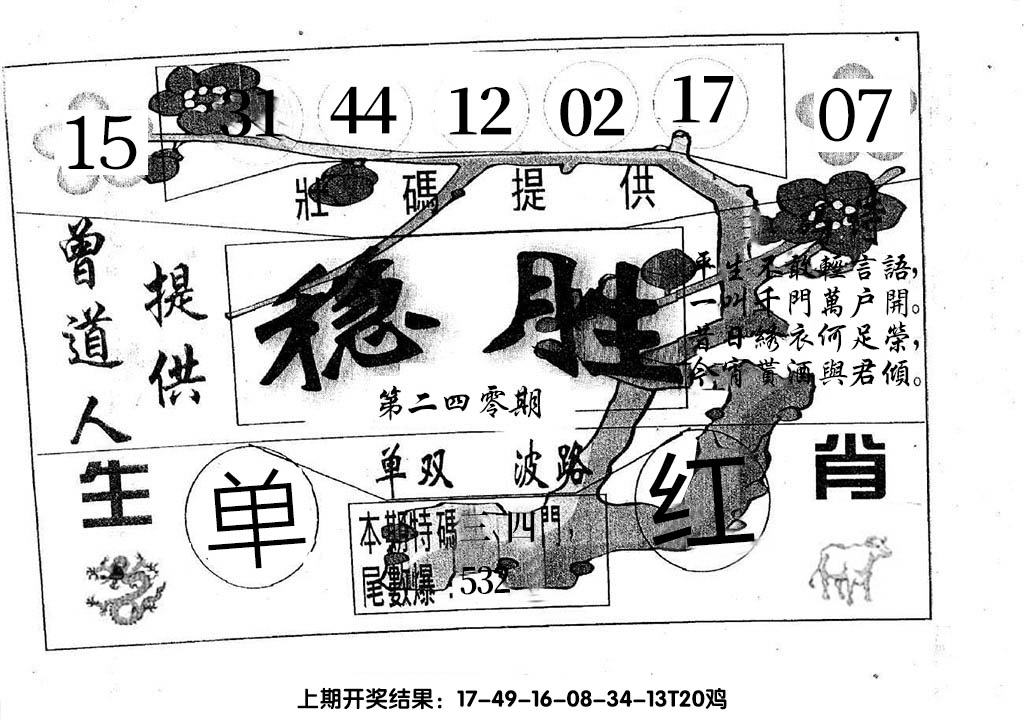 15 31 44 12 02 17 07
壯碼提供
詩
曾道人
提供
稳胜
第二四零期
平生不敢輕言語，
一叫千門萬户開。
昔日綉衣何足榮，
今宵貰酒與君傾。
单双 波路
生
单
本期特碼三、四門，
尾數爆：532
红
肖
上期开奖结果：17-49-16-08-34-13T20鸡